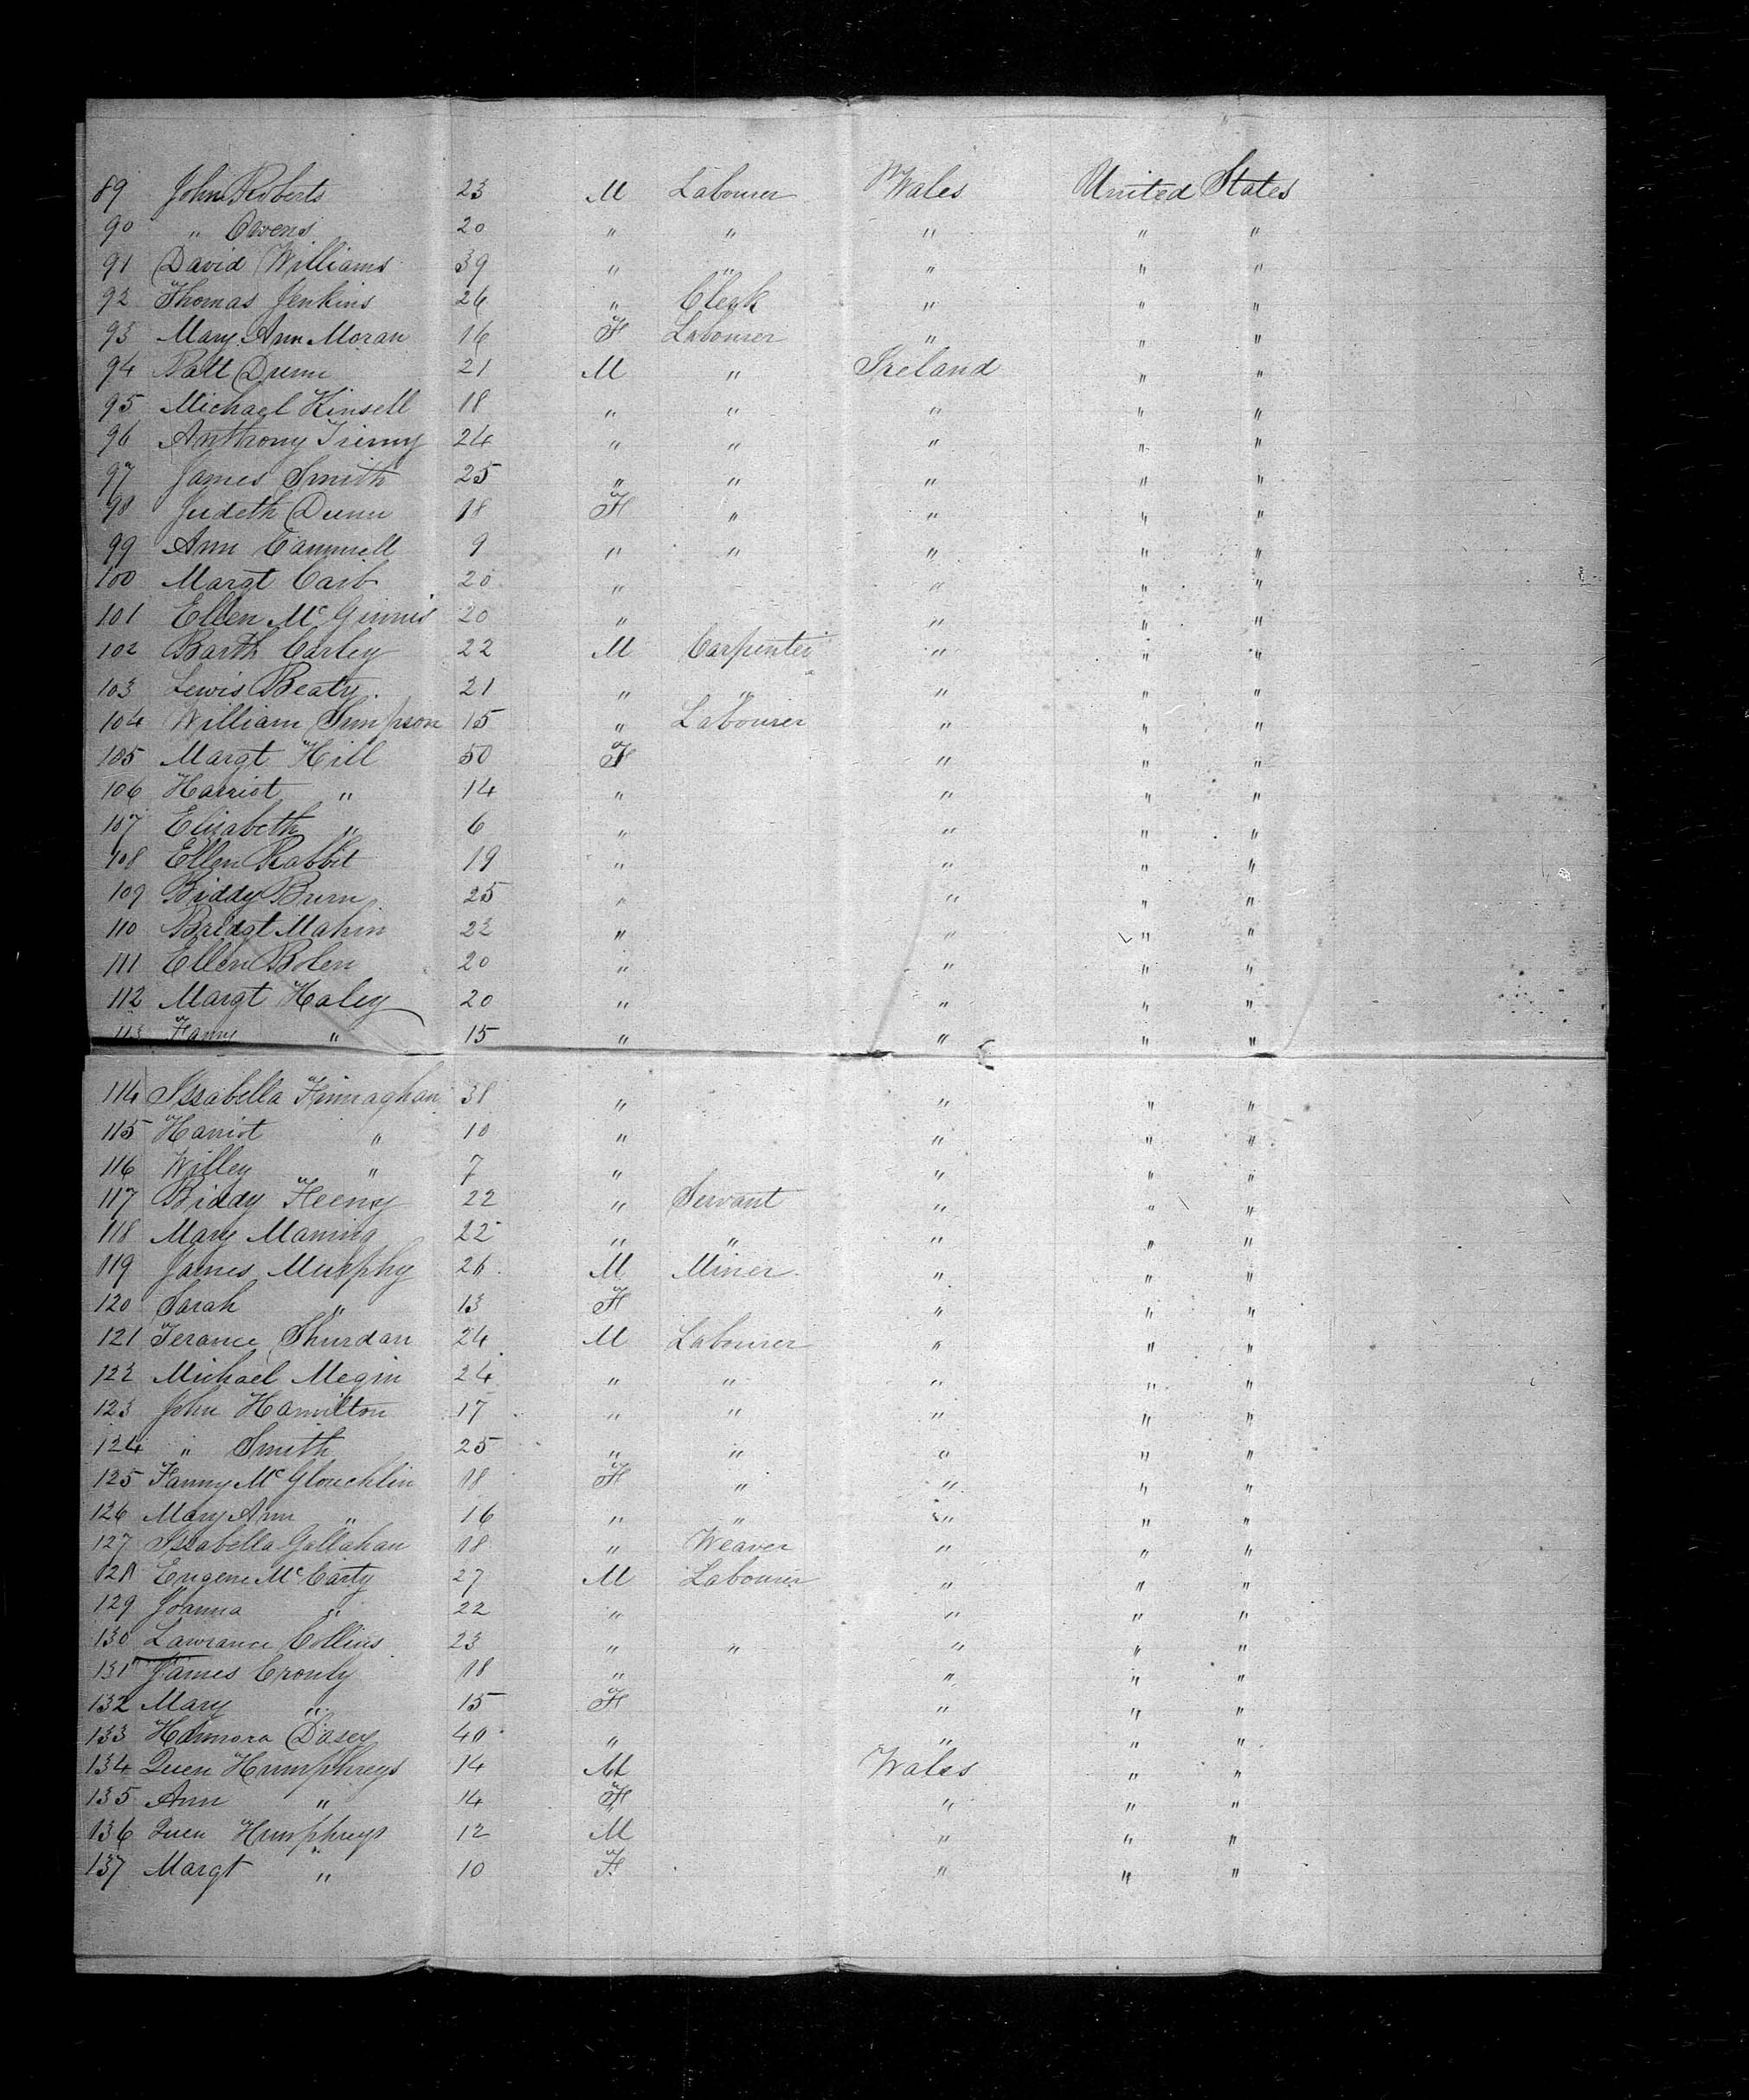 89 John Roberts 23 M Labourer Wales United States
90 " Owens 20 " " " " "
91 David Williams 39 " " " " "
92 Thomas Jenkins 26 " Clerk " " "
93 Mary Ann Moran 16 F Labourer " " "
94 Patt Dunn 21 M " Ireland " "
95 Michael Kinsell 18 " " " " "
96 Anthony 24 " " " " "
97 James Smith 25 " " " " "
98 Judeth Dunn 18 F " " " "
99 Ann Cammell 9 " " " " "
100 Margt 20 " " " "
101 Ellen McGinnis 20 " " " "
102 Barth Carley 22 M Carpenter " " "
103 Lewis Beaty. 21 " " " " "
104 William Simpson 15 " Labourer " " "
105 Margt Hill 50 F " " "
106 Harriot " 14 " " " "
107 Elizabeth " 6 " " " "
108 Ellen Rabbit 19 " " " "
109 Biddy Burn 25 " " " "
110 Bridgt Mahin 22 " " " "
111 Ellen Bolen 20 " " " "
112 Margt Haley 20 " " " "
113 Fanny " 15 " " " "
114 Issabella Finnaghan 38 " " " "
115 Harriot " 10 " " " "
116 Willey " 7 " " " "
117 Biddy Feeny 22 " Servant " " "
118 Mary Maning 22 " " " " "
119 James Murphy 26 M Miner " " "
120 Sarah " 13 F " " "
121 Terance Shurdan 24 M Labourer " " "
122 Michael Megin 24 " " " " "
123 John Hamilton 17 " " " " "
124 " Smith 25 " " " " "
125 Fanny McGlouchlin 18 F " " " "
126 Mary Ann " 16 " " " " "
127 Issabella Gallahan 18 " Weaver " " "
128 Eugene McCarty 27 M Labourer " " "
129 Joanna " 22 " " " "
130 Lawrance Collins 23 " " " " "
131 James Cronly 18 " " " "
132 Mary " 15 F " " "
133 Hannora Dasey 40 " " " "
134 Quen Humphreys 14 M Wales " "
135 Ann " 14 F " " "
136 Quen Humphreys 12 M " " "
137 Margt " 10 F " " "